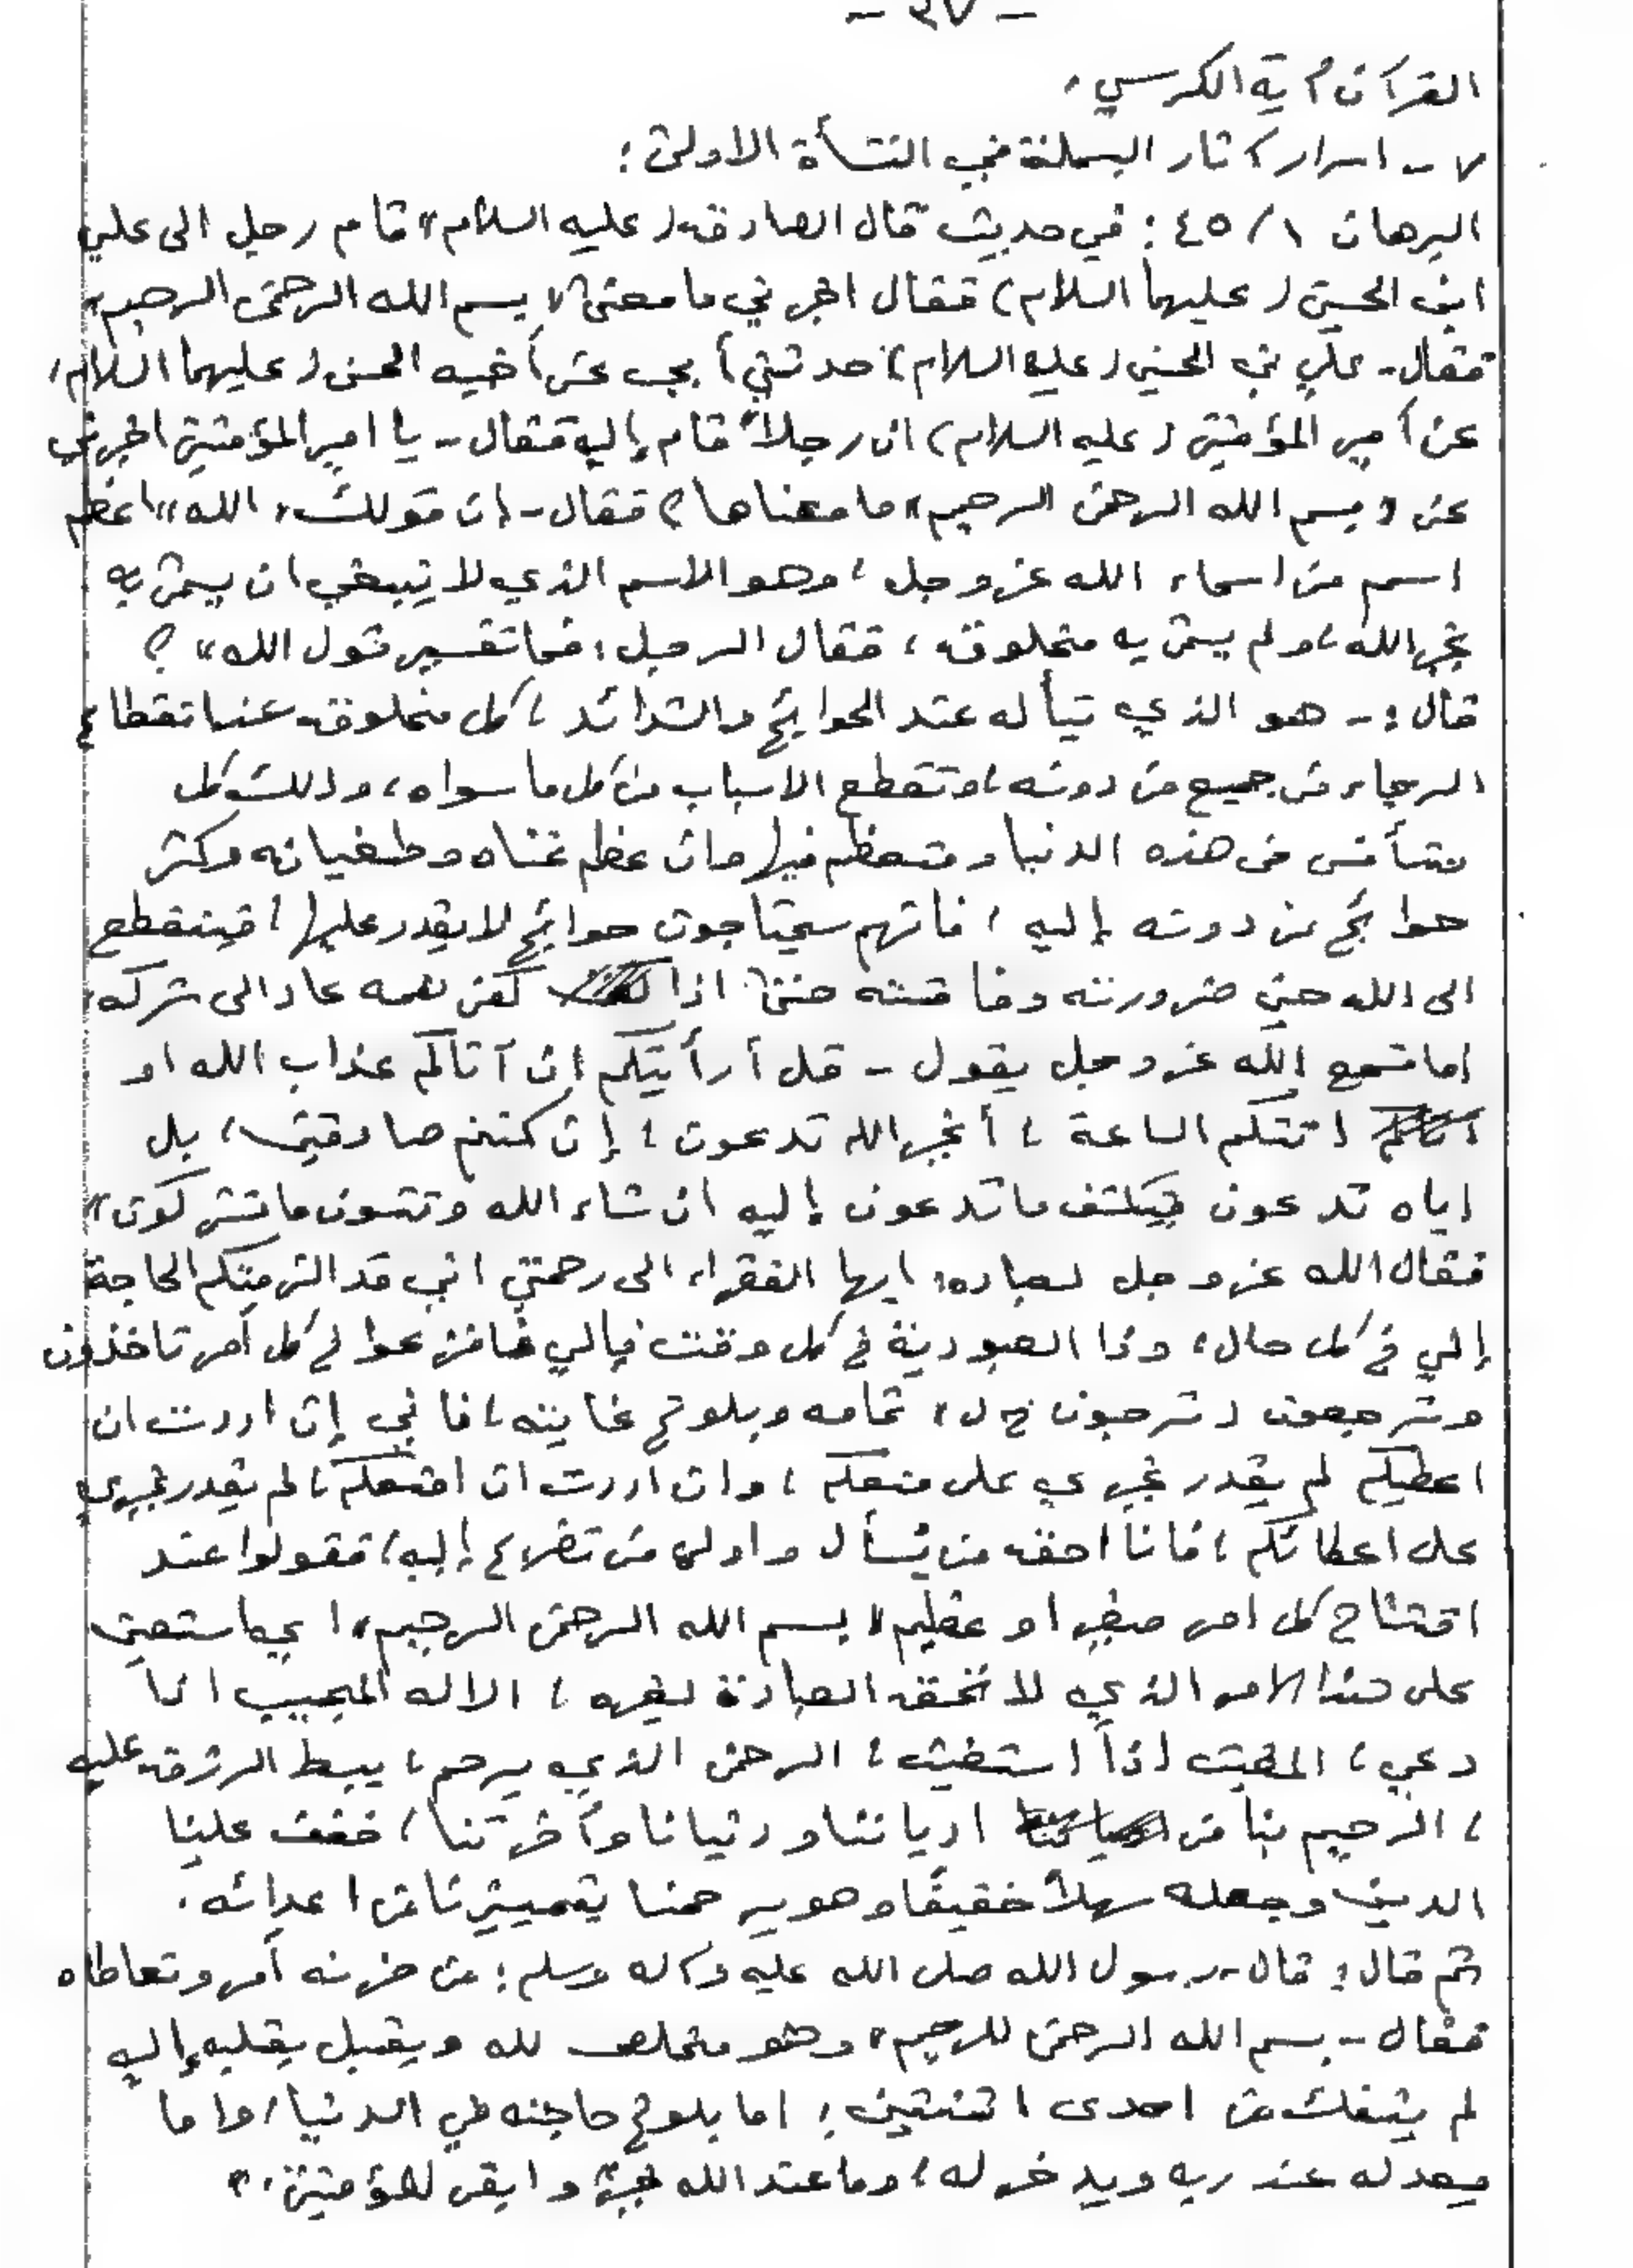 - ٢٧ -
القرآن آية الكرسي.
٧ - اسرار آثار البسملة في النشأة الاولى:
البرهان ٤٥/١: في حديث قال الصادق (عليه السلام) "قام رجل الى علي
ابن الحسين (عليهما السلام) فقال اخبرني ما معنى "بسم الله الرحمن الرحيم"
فقال - علي بن الحسين (عليه السلام) حدثني أبي عن أخيه الحسن (عليهما السلام)
عن أمير المؤمنين (عليه السلام) ان رجلاً قام إليه فقال - يا امير المؤمنين اخبرني
عن "بسم الله الرحمن الرحيم" ما معناها؟ فقال - إن قولك "الله" اعظم
اسم من اسماء الله عز وجل، وهو الاسم الذي لا ينبغي ان يسمى به
غير الله، ولم يسم به مخلوق، فقال الرجل: فما تفسير قول الله" ؟
قال: - هو الذي يتأله عند الحوايج والشدائد، كل مخلوق عند انقطاع
الرجاء من جميع من دونه، وتقطع الاسباب من كل ما سواه، وذلك كل
مترأس في هذه الدنيا ومتعظم فيها وان عظم غناه وطغيانه وكثر
حوائج من دونه إليه، فانهم سيحتاجون حوايج لا يقدر عليها، فينقطع
الى الله حين ضرورته وفاقته حتى اذا كفى همه عاد الى شركه،
اما تسمع الله عز وجل يقول - قل أرأيتكم إن آتاكم عذاب الله او
اتتكم الساعة، أغير الله تدعون، إن كنتم صادقين، بل
اياه تدعون فيكشف ما تدعون إليه ان شاء الله وتنسون ما تشركون"
فقال الله عز وجل لعباده: ايها الفقراء الى رحمتي اني قد الزمتكم الحاجة
إلي في كل حال، وذل العبودية في كل وقت فإلي فافزعوا في كل أمر تاخذون
وترجعون (ترجون خ ل) تمامه وبلوغ غايته، فاني إن اردت ان
اعطيكم لم يقدر غيري على منعكم، وان أردت ان امنعكم، لم يقدر غيري
على اعطائكم، فانا احق من يسأل واولى من تضرع إليه، فقولوا عند
افتتاح كل امر صغير او عظيم "بسم الله الرحمن الرحيم" اي استعين
على هذا الامر الذي لا تحق العبادة لغيره، الاله المجيب اذا
دعي، المغيث اذا استغيث، الرحمن الذي يرحم، يبسط الرزق عليه
، الرحيم بنا في ادياننا ودنيانا وآخرتنا، خفف علينا
الدين وجعله سهلاً خفيفًا وهو يرحمنا بتمييزنا من اعدائه.
ثم قال: قال - رسول الله صلى الله عليه وآله وسلم: من حزنه أمر وتعاطاه
فقال - بسم الله الرحمن الرحيم" وهو مخلص لله ويقبل بقلبه إليه
لم ينفك من احدى اثنتين: اما بلوغ حاجته في الدنيا، واما
يعد له عند ربه ويدخر له، وما عند الله خير وابقى للمؤمنين."